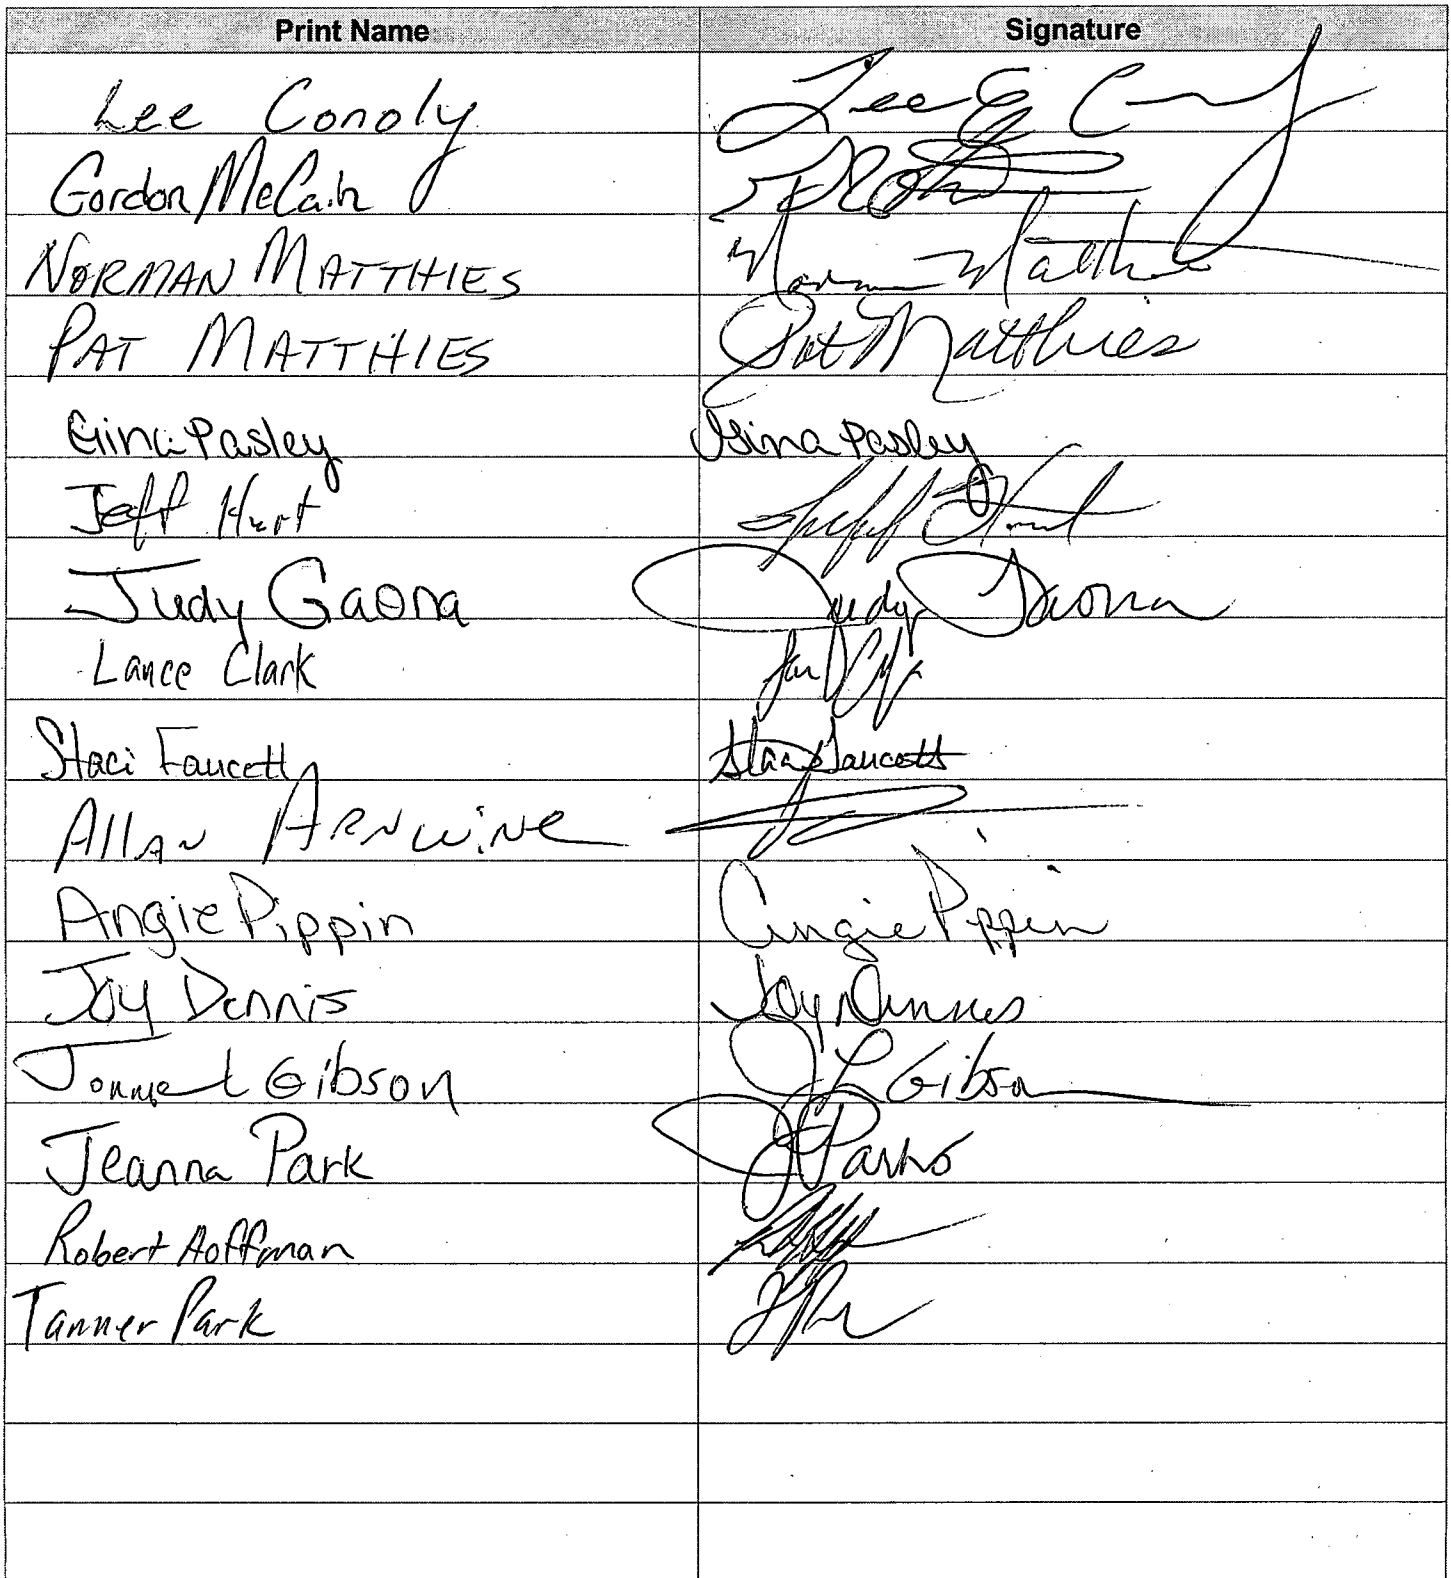 Print Name Signature
Lee Conoly Lee E
Gordon McCain
NORMAN MATTHIES Norman Matthies
PAT MATTHIES Pat Matthies
Gina Pasley Gina Pasley
Jeff Hurt Jeff Hurt
Judy Gaona Judy Gaona
Lance Clark
Staci Faucett Staci Faucett
Allan Arnwine
Angie Pippin Angie Pippin
Joy Dennis Joy Dennis
Gibson J L Gibson
Jeanna Park J Park
Robert Hoffman
Tanner Park